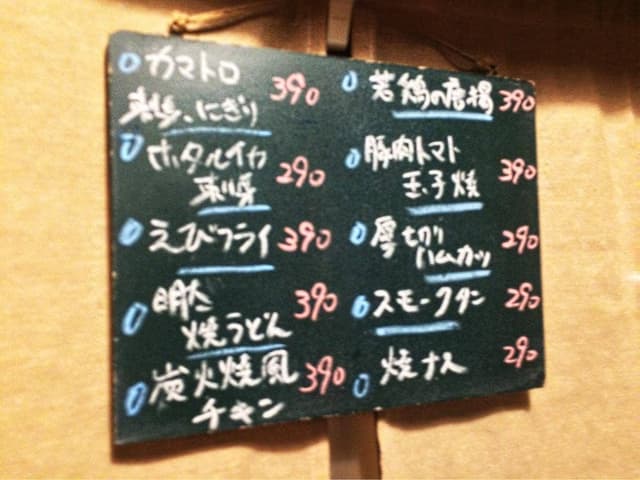 カマトロ
刺身、にぎり 390
ホタルイカ
刺身 290
えびフライ 390
明太
焼うどん 390
炭火焼風
チキン 390
若鶏の唐揚 390
豚肉トマト
玉子焼 390
厚切り
ハムカツ 290
スモークタン 290
焼ナス 290